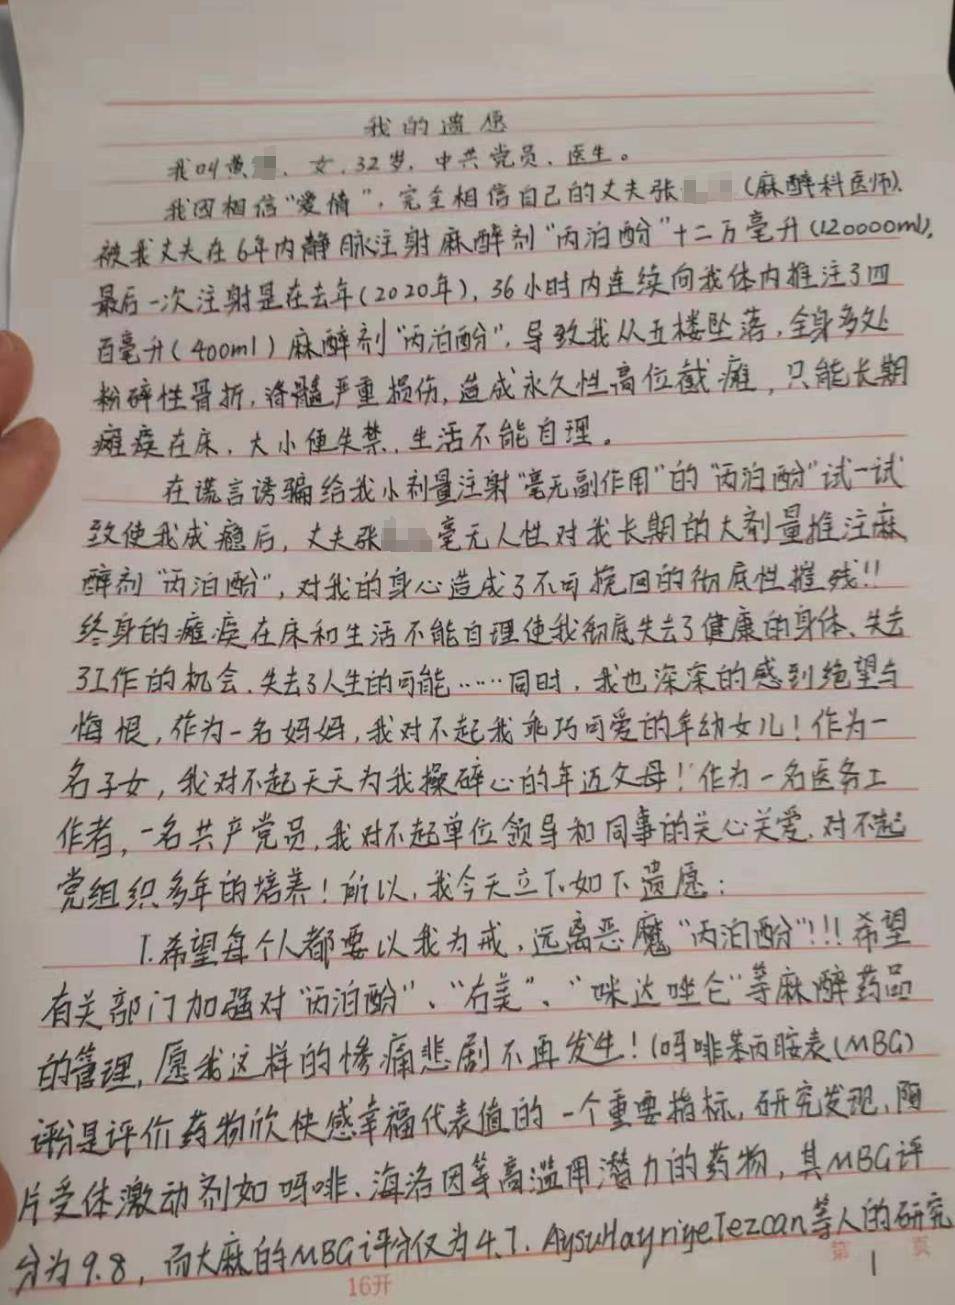 我的遗愿
我叫黄 、女、32岁，中共党员、医生。
我因相信“爱情”，完全相信自己的丈夫张 （麻醉科医师），
被我丈夫在6年内静脉注射麻醉剂“丙泊酚”十二万毫升（120000ml），
最后一次注射是在去年（2020年），36小时内连续向我体内推注了四
百毫升（400ml）麻醉剂“丙泊酚”，导致我从五楼坠落，全身多处
粉碎性骨折，脊髓严重损伤，造成永久性高位截瘫，只能长期
瘫痪在床，大小便失禁、生活不能自理。
在谎言诱骗给我小剂量注射“毫无副作用”的“丙泊酚”试一试
致使我成瘾后，丈夫张 毫无人性对我长期的大剂量推注麻
醉剂“丙泊酚”，对我的身心造成了不可挽回的彻底性摧残！！
终身的瘫痪在床和生活不能自理使我彻底失去了健康的身体、失去
了工作的机会、失去了人生的可能……同时，我也深深的感到绝望与
悔恨，作为一名妈妈，我对不起我乖巧可爱的年幼女儿！作为一
名子女，我对不起天天为我操碎心的年迈父母！作为一名医务工
作者，一名共产党员，我对不起单位领导和同事的关心关爱、对不起
党组织多年的培养！所以，我今天立下如下遗愿：
1.希望每个人都要以我为戒，远离恶魔“丙泊酚”！！！希望
有关部门加强对“丙泊酚”、“右美”、“咪达唑仑”等麻醉药品
的管理，愿我这样的惨痛悲剧不再发生！（吗啡苯丙胺表（MBG）
评分是评价药物欣快感幸福代表值的一个重要指标，研究发现，阿
片受体激动剂如吗啡、海洛因等高滥用潜力的药物，其MBG评
分为9.8，而大麻的MBG评分仅为4.7. AysuHayriyeTezcan等人的研究
第 1 页
16开